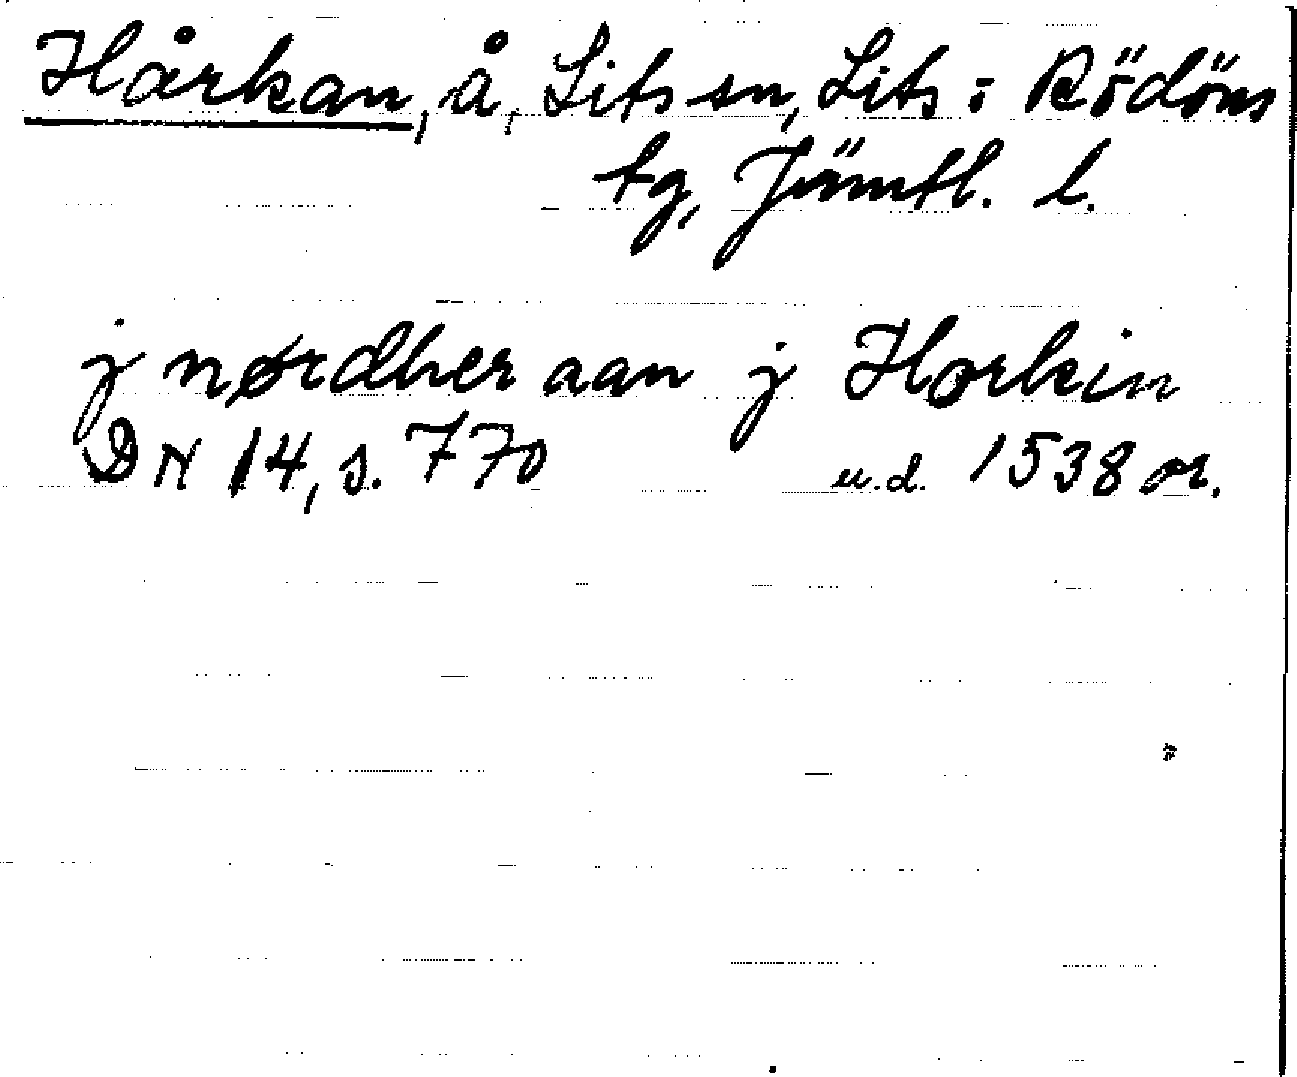 Hårkan, å, Lits sn, Lits o Rödöns
tg, Jämtl. l.
j nørdher aan j Horkin
DN 14, s. 770 u.d. 1538 or.